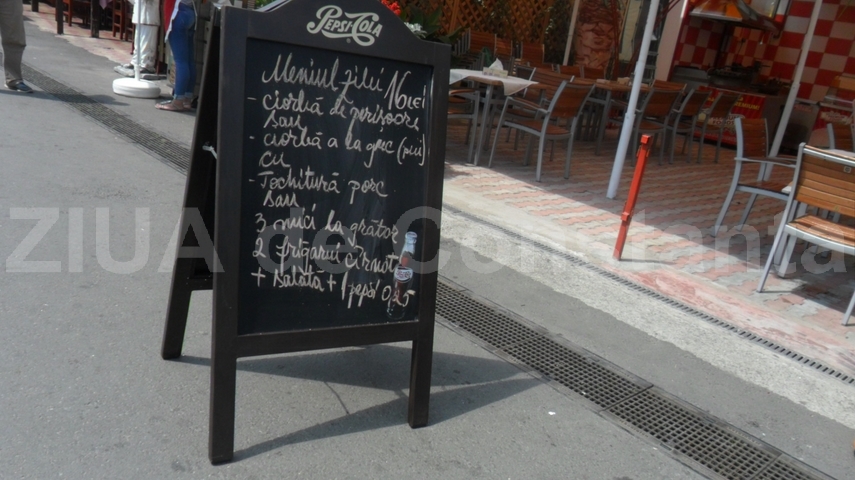 PEPSI-COLA
Meniul zilei 16 lei
- ciorbă de perișoare
sau
- ciorbă a la grec (pui)
cu
- Tochitură porc
sau
3 mici la grătar
2 frigărui cârnați
+ salată + 1 pepsi 0,25
ZIUA de Constanta